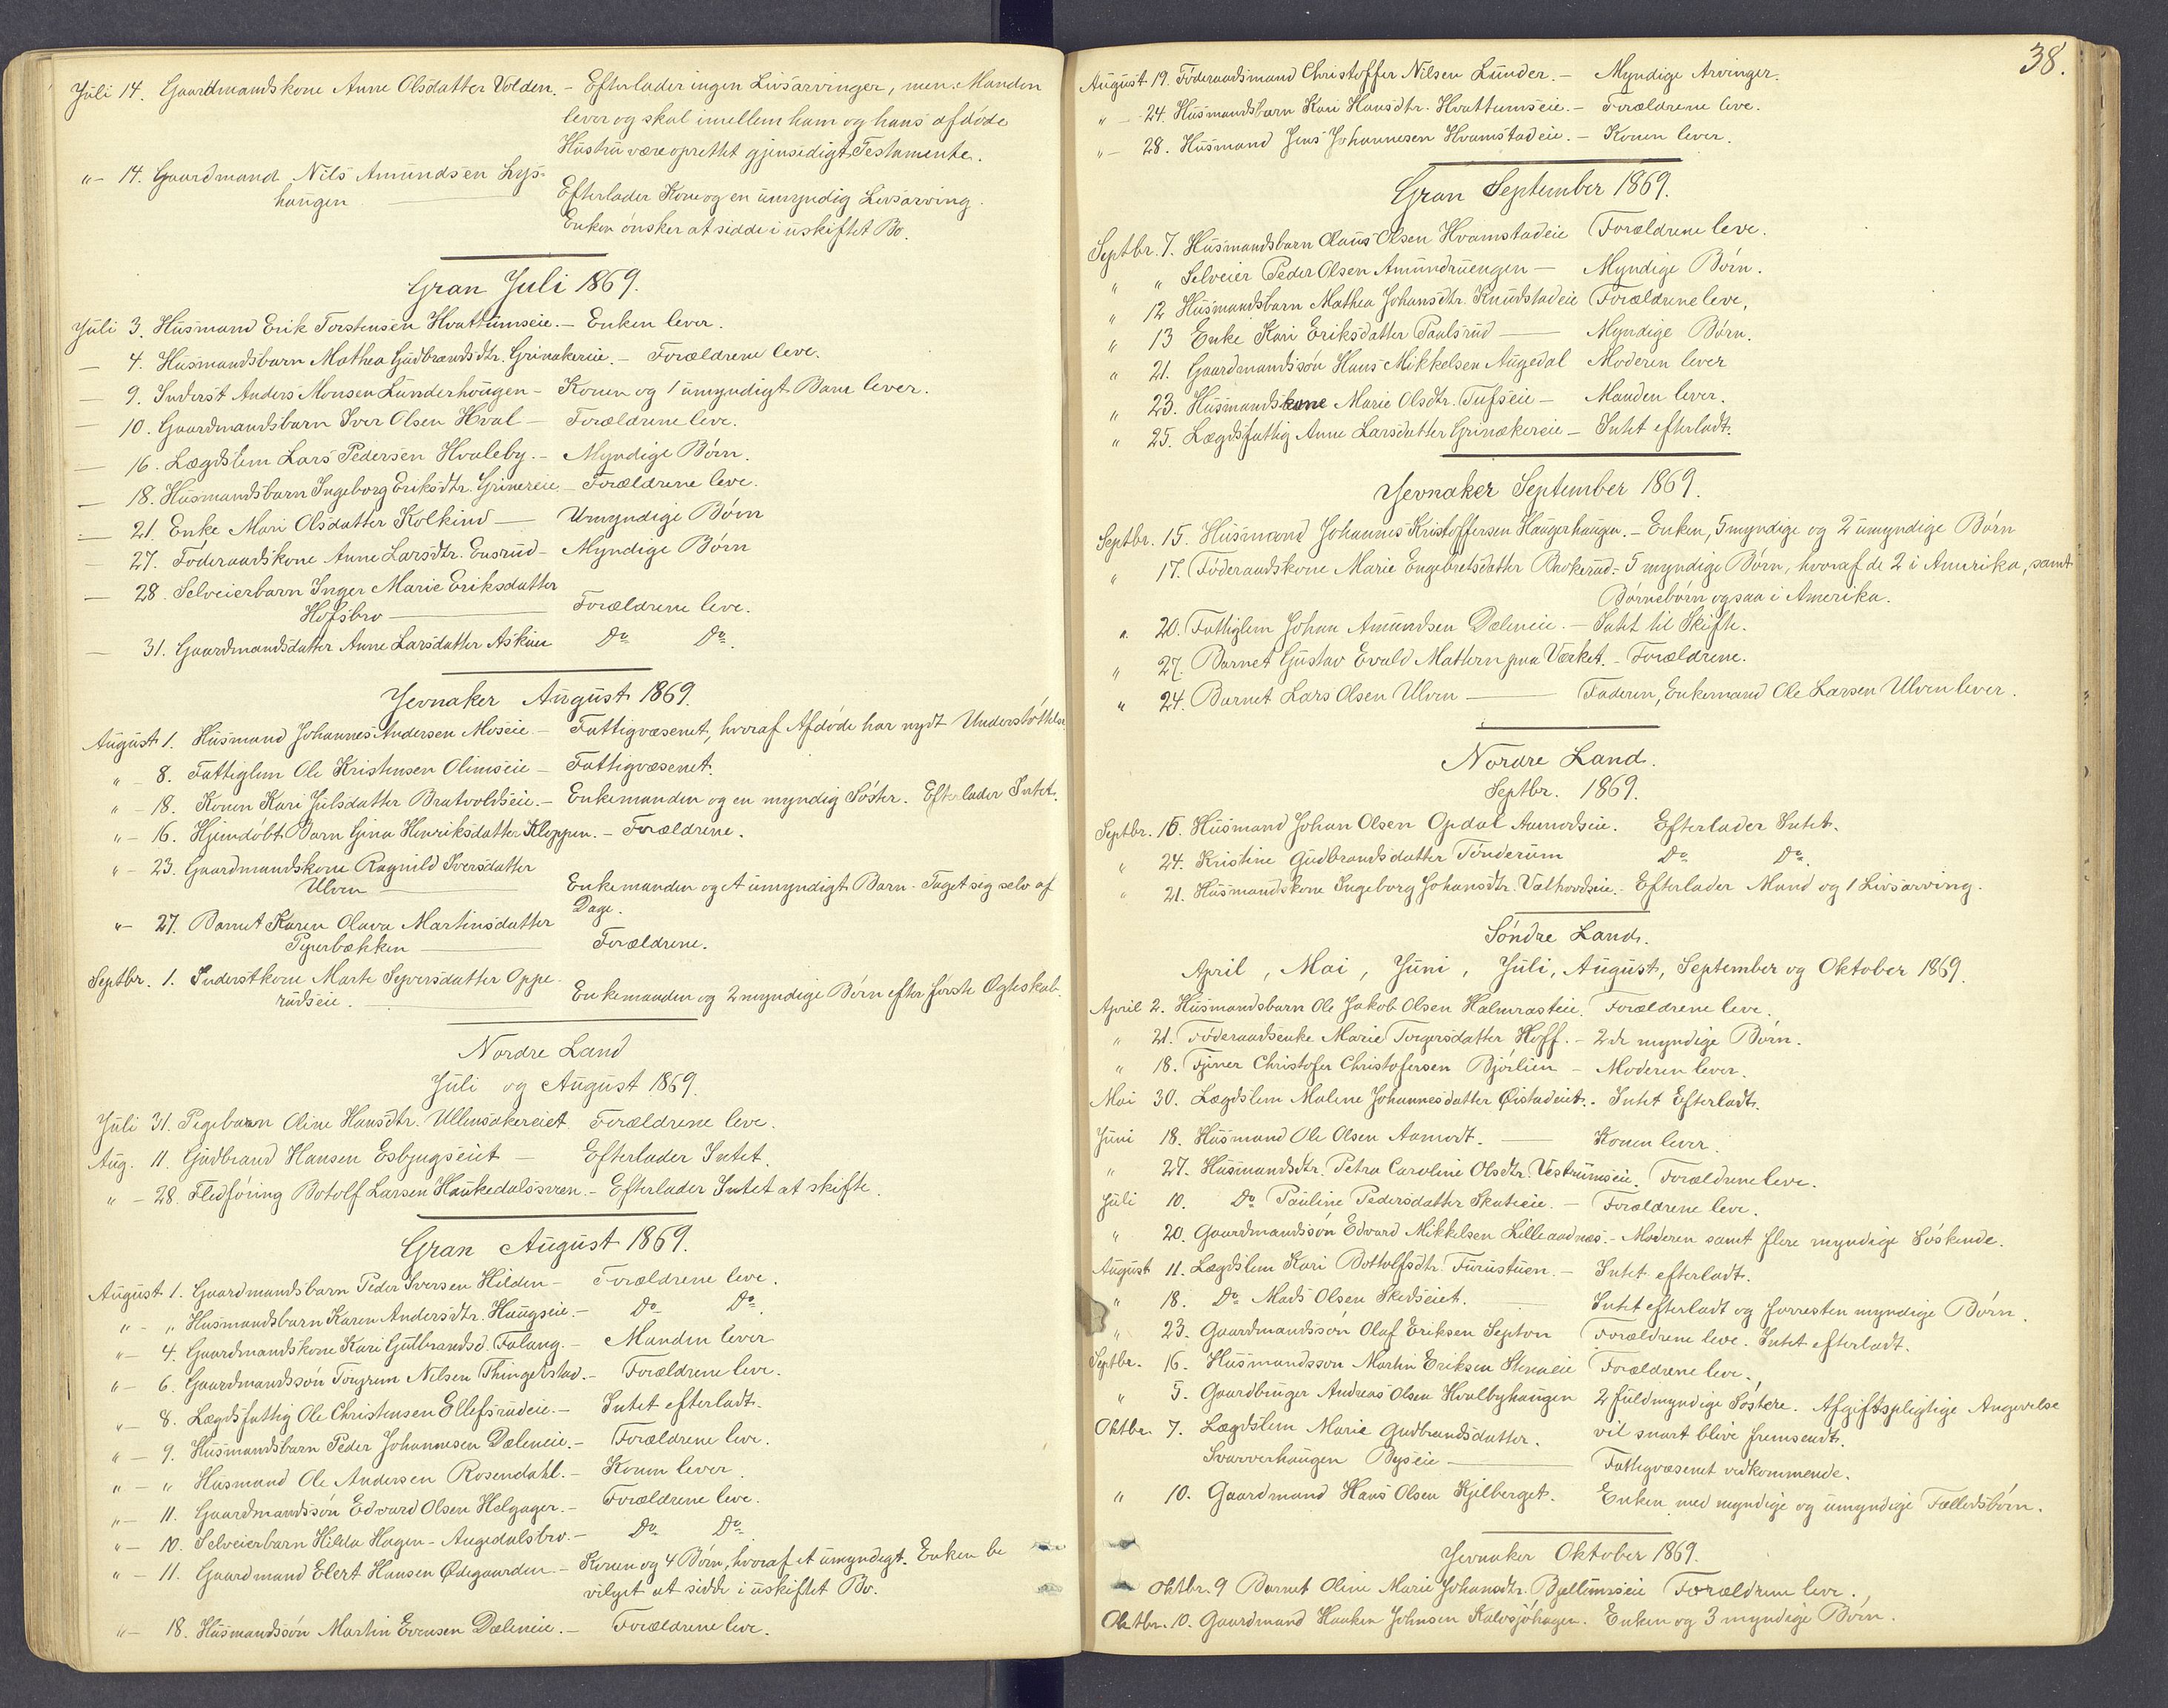 Juli 14. Gaardmandskone Anne Olsdatter Volden. - Efterlader ingen Livsarvinger, men Manden
lever og skal imellem ham og hans afdøde
Hustru være oprettet gjensidigt Testamente.
"- 14. Gaardmand Nils Amundsen Lys-
haugen — Efterlader Kone og en umyndig Livsarving.
Enken ønsker at sidde i uskiftet Bo.
Gran Juli 1869.
Juli 3. Husmand Erik Torstensen Hvattumseie. - Enken lever.
— 4. Husmandsbarn Mathea Gudbrandsdtr. Grinakereie. - Forældrene leve.
— 9. Inderst Anders Monsen Lunderhougen - Konen og 1 umyndigt Barn lever.
— 10. Gaardmandsbarn Iver Olsen Hval - Forældrene leve.
— 16. Lægdslem Lars Pedersen Hvaleby. - Myndige Børn.
— 18. Husmandsbarn Ingeborg Eriksdtr. Grinereie - Forældrene leve.
— 21. Enke Mari Olsdatter Kolkind — Umyndige Børn
— 27. Føderaadskone Anne Larsdtr. Ensrud - Myndige Børn
— 28. Selveierbarn Inger Marie Eriksdatter
Hofsbro — Forældrene leve.
— 31. Gaardmandsdatter Anne Larsdatter Askim Do Do.
Jevnaker August 1869.
August 1. Husmand Johannes Andersen Moseie - Fattigvæsenet, hvoraf Afdøde har nydt Understøttelse
" - 8. Fattiglem Ole Kristensen Olimseie - Fattigvæsenet.
" - 18. Konen Kari Julsdatter Bratvoldseie. - Enkemanden og en myndig Søster. Efterlader Intet.
" - 16. Hjemdøbt Barn Gina Henriksdatter Kloppen. - Forældrene.
" - 23. Gaardmandskone Ragnild Iversdatter
Ulven — Enkemanden og et umyndigt Barn - Taget sig selv af
Dage.
"- 27. Barnet Karen Olava Martinsdatter
Peperbækken — Forældrene.
Septbr. 1. Inderstkone Marte Syversdatter Oppe-
rudseie. — Enkemanden og 2 myndige Børn efter første Ægteskab.
Nordre Land
Juli og August 1869.
Juli 31. Pigebarn Oline Hansdtr. Ullensakereiet Forældrene leve.
Aug. 11. Gudbrand Hansen Esbjugseiet — Efterlader Intet.
" - 28. Fledføring Botolf Larsen Haukedalssveen. - Efterlader Intet at skifte.
Gran August 1869.
August 1. Gaardmandsbarn Peder Iversen Hilden - Forældrene leve.
" - " Husmandsbarn Karen Andersdtr. Haugseie. - Do Do.
"- 4. Gaardmandskone Kari Gulbrandsd. Falang. - Manden lever
"- 6. Gaardmandssøn Torgrim Nilsen Thingelstad. - Forældrene leve.
"- 8. Lægdsfattig Ole Christensen Ellefsrudeie. - Intet efterladt.
"- 9. Husmandsbarn Peder Johannesen Dæleneie. - Forældrene leve.
"- " Husmand Ole Andersen Rosendahl. - Konen lever.
"- 11. Gaardmandssøn Edvard Olsen Helgager. - Forældrene leve.
"- 10. Selveierbarn Hilda Hagen - Augedalsbro. - Do Do
"- 11. Gaardmand Elert Hansen Ødegaarden. - Konen og 4 Børn, hvoraf et umyndigt. Enken be
vilget at sidde i uskiftet Bo.
"- 18. Husmandssøn Martin Evensen Dæleneie. - Forældrene leve.
38.
August 19. Føderaadsmand Christoffer Nilsen Lunder. - Myndige Arvinger.
" - 24. Husmandsbarn Kari Hansdtr. Hvattumseie. - Forældrene leve.
"- 28. Husmand Jens Johannesen Hvamstadeie. - Konen lever.
Gran September 1869.
Septbr. 7. Husmandsbarn Olaus Olsen Hvamstadeie Forældrene leve.
" " Selveier Peder Olsen Amundruengen — Myndige Børn.
" 12 Husmandsbarn Mathea Johansdtr. Knudstadeie Forældrene leve,
" 13 Enke Kari Eriksdatter Paulsrud — Myndige Børn.
" 21. Gaardmandssøn Hans Mikkelsen Augedal Moderen lever
" 23. Husmandskone Marie Olsdtr. Tufseie - Manden lever.
" 25. Lægdsfattig Anne Larsdatter Grinakereie - Intet efterladt.
Jevnaker September 1869.
Septbr. 15. Husmand Johannes Kristoffersen Haugerhaugen. - Enken, 5 myndige og 2 umyndige Børn
" 17. Føderaadskone Marie Engebretsdatter Brokerud. - 5 myndige Børn, hvoraf de 2 i Amerika, samt
Børnebørn ogsaa i Amerika.
" 20. Fattiglem Johan Amundsen Dæleneie. - Intet til Skifte.
" 27. Barnet Gustav Evald Mathern paa Værket. - Forældrene.
" 24. Barnet Lars Olsen Ulven — Faderen, Enkemand Ole Larsen Ulven lever.
Nordre Land.
Septbr. 1869.
Septbr. 16. Husmand Johan Olsen Opdal Aamodseie. Efterlader Intet.
" 24. Kristine Gudbrandsdatter Tønderum Do Do.
" 21. Husmandskone Ingeborg Johansdtr. Valhovdseie. - Efterlader Mand og 1 Livsarving.
Søndre Land.
April, Mai, Juni, Juli, August, September og Oktober 1869.
April 2. Husmandsbarn Ole Jakob Olsen Halmrasteie. Forældrene leve.
" 21. Føderaadsenke Marie Torgersdatter Hoff. - 2de myndige Børn.
" 18. Tjener Christofer Christofersen Bjørlien - Moderen lever.
Mai 30. Lægdslem Malene Johannesdatter Øistadeiet. - Intet Efterladt.
Juni 18. Husmand Ole Olsen Aamodt. — Konen lever.
" 27. Husmandsdtr. Petra Caroline Olsdtr. Vestrumseie. Forældrene leve.
Juli 10. Do Pauline Pedersdatter Skuteeie. - Forældrene leve.
" 20. Gaardmandssøn Edvard Mikkelsen Lilleaadnæs. - Moderen samt flere myndige Søskende.
August 11. Lægdslem Kari Botholfsdtr. Furustuen. - Intet efterladt.
" 18. Do Mads Olsen Skedseiet. — Intet efterladt og forresten myndige Børn.
" 23. Gaardmandssøn Olaf Eriksen Septon Forældrene leve. Intet efterladt.
Septbr. 16. Husmandssøn Martin Eriksen Stenseie Forældrene leve.
" 5. Gaardbruger Andreas Olsen Hvalbyhaugen 2 fuldmyndige Søstere. Afgiftspligtige Angivelse
vil snart blive fremsendt.
Oktbr. 7. Lægdslem Marie Gudbrandsdatter.
Svarverhaugen Byseie — Fattigvæsenet vedkommende.
" 10. Gaardmand Hans Olsen Kjilberget. Enken med myndige og umyndige Fælledsbørn.
Jevnaker Oktober 1869.
Oktbr. 9 Barnet Oline Marie Johansdtr. Bjellumseie Forældrene leve.
Oktbr. 10. Gaardmand Haaken Johnsen Kalvsjøhagen. Enken og 3 myndige Børn.